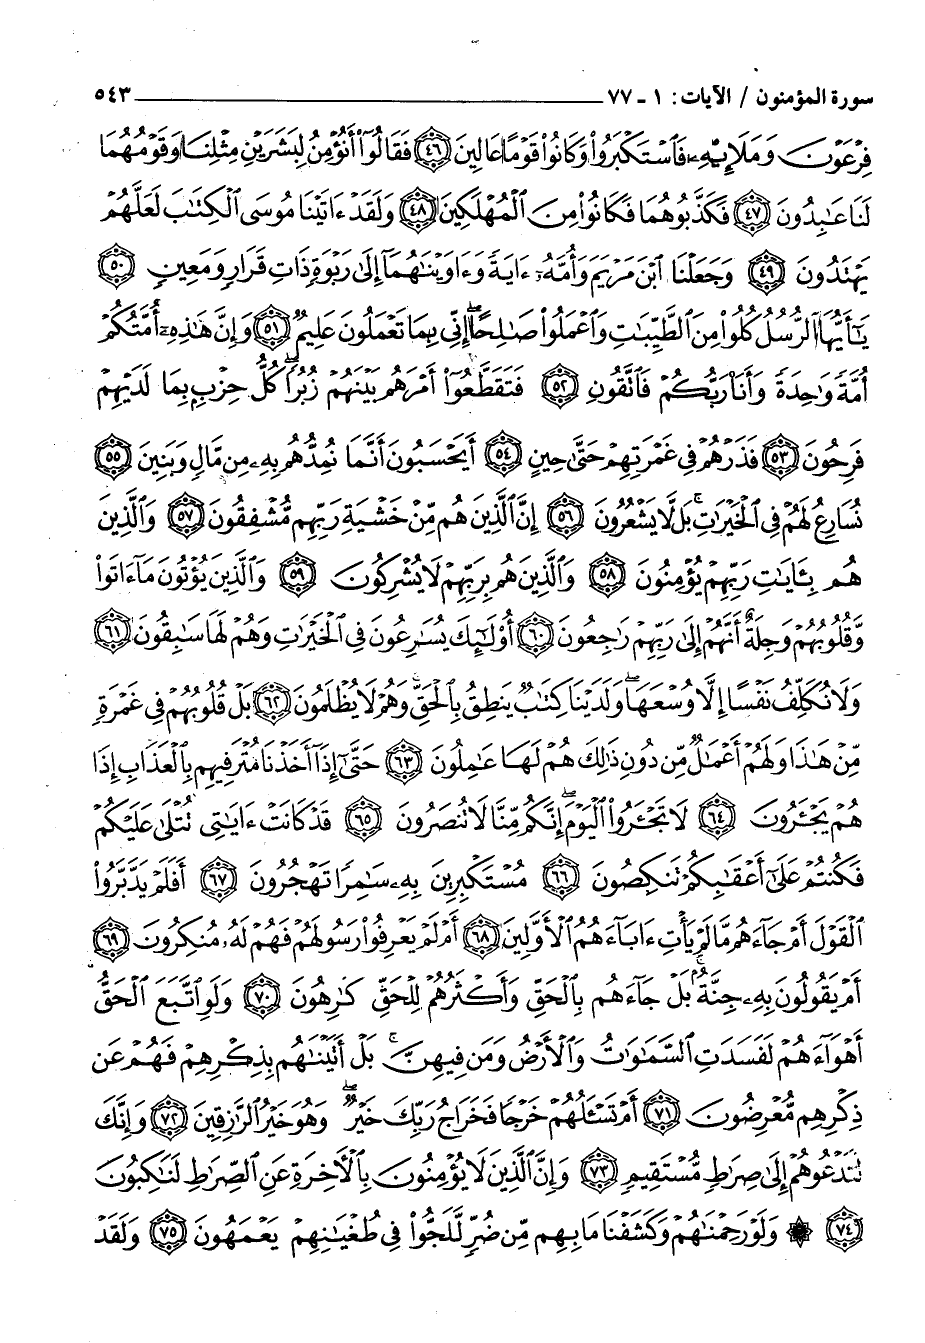 سورة المؤمنون / الآيات : ١ - ٧٧ ٥٤٣
فِرْعَوْنَ وَمَلَإِيْهِۦ فَٱسْتَكْبَرُوا۟ وَكَانُوا۟ قَوْمًا عَالِينَ ﴿٤٦﴾ فَقَالُوٓا۟ أَنُؤْمِنُ لِبَشَرَيْنِ مِثْلِنَا وَقَوْمُهُمَا
لَنَا عَٰبِدُونَ ﴿٤٧﴾ فَكَذَّبُوهُمَا فَكَانُوا۟ مِنَ ٱلْمُهْلَكِينَ ﴿٤٨﴾ وَلَقَدْ ءَاتَيْنَا مُوسَى ٱلْكِتَٰبَ لَعَلَّهُمْ
يَهْتَدُونَ ﴿٤٩﴾ وَجَعَلْنَا ٱبْنَ مَرْيَمَ وَأُمَّهُۥٓ ءَايَةً وَءَاوَيْنَٰهُمَآ إِلَىٰ رَبْوَةٍ ذَاتِ قَرَارٍ وَمَعِينٍ ﴿٥٠﴾
يَٰٓأَيُّهَا ٱلرُّسُلُ كُلُوا۟ مِنَ ٱلطَّيِّبَٰتِ وَٱعْمَلُوا۟ صَٰلِحًا ۖ إِنِّى بِمَا تَعْمَلُونَ عَلِيمٌ ﴿٥١﴾ وَإِنَّ هَٰذِهِۦٓ أُمَّتُكُمْ
أُمَّةً وَٰحِدَةً وَأَنَا۠ رَبُّكُمْ فَٱتَّقُونِ ﴿٥٢﴾ فَتَقَطَّعُوٓا۟ أَمْرَهُم بَيْنَهُمْ زُبُرًا ۖ كُلُّ حِزْبٍۭ بِمَا لَدَيْهِمْ
فَرِحُونَ ﴿٥٣﴾ فَذَرْهُمْ فِى غَمْرَتِهِمْ حَتَّىٰ حِينٍ ﴿٥٤﴾ أَيَحْسَبُونَ أَنَّمَا نُمِدُّهُم بِهِۦ مِن مَّالٍ وَبَنِينَ ﴿٥٥﴾
نُسَارِعُ لَهُمْ فِى ٱلْخَيْرَٰتِ ۚ بَل لَّا يَشْعُرُونَ ﴿٥٦﴾ إِنَّ ٱلَّذِينَ هُم مِّنْ خَشْيَةِ رَبِّهِم مُّشْفِقُونَ ﴿٥٧﴾ وَٱلَّذِينَ
هُم بِـَٔايَٰتِ رَبِّهِمْ يُؤْمِنُونَ ﴿٥٨﴾ وَٱلَّذِينَ هُم بِرَبِّهِمْ لَا يُشْرِكُونَ ﴿٥٩﴾ وَٱلَّذِينَ يُؤْتُونَ مَآ ءَاتَوا۟
وَّقُلُوبُهُمْ وَجِلَةٌ أَنَّهُمْ إِلَىٰ رَبِّهِمْ رَٰجِعُونَ ﴿٦٠﴾ أُو۟لَٰٓئِكَ يُسَٰرِعُونَ فِى ٱلْخَيْرَٰتِ وَهُمْ لَهَا سَٰبِقُونَ ﴿٦١﴾
وَلَا نُكَلِّفُ نَفْسًا إِلَّا وُسْعَهَا ۖ وَلَدَيْنَا كِتَٰبٌ يَنطِقُ بِٱلْحَقِّ ۚ وَهُمْ لَا يُظْلَمُونَ ﴿٦٢﴾ بَلْ قُلُوبُهُمْ فِى غَمْرَةٍ
مِّنْ هَٰذَا وَلَهُمْ أَعْمَٰلٌ مِّن دُونِ ذَٰلِكَ هُمْ لَهَا عَٰمِلُونَ ﴿٦٣﴾ حَتَّىٰٓ إِذَآ أَخَذْنَا مُتْرَفِيهِم بِٱلْعَذَابِ إِذَا
هُمْ يَجْـَٔرُونَ ﴿٦٤﴾ لَا تَجْـَٔرُوا۟ ٱلْيَوْمَ ۖ إِنَّكُم مِّنَّا لَا تُنصَرُونَ ﴿٦٥﴾ قَدْ كَانَتْ ءَايَٰتِى تُتْلَىٰ عَلَيْكُمْ
فَكُنتُمْ عَلَىٰٓ أَعْقَٰبِكُمْ تَنكِصُونَ ﴿٦٦﴾ مُسْتَكْبِرِينَ بِهِۦ سَٰمِرًا تَهْجُرُونَ ﴿٦٧﴾ أَفَلَمْ يَدَّبَّرُوا۟
ٱلْقَوْلَ أَمْ جَآءَهُم مَّا لَمْ يَأْتِ ءَابَآءَهُمُ ٱلْأَوَّلِينَ ﴿٦٨﴾ أَمْ لَمْ يَعْرِفُوا۟ رَسُولَهُمْ فَهُمْ لَهُۥ مُنكِرُونَ ﴿٦٩﴾
أَمْ يَقُولُونَ بِهِۦ جِنَّةٌۢ ۚ بَلْ جَآءَهُم بِٱلْحَقِّ وَأَكْثَرُهُمْ لِلْحَقِّ كَٰرِهُونَ ﴿٧٠﴾ وَلَوِ ٱتَّبَعَ ٱلْحَقُّ
أَهْوَآءَهُمْ لَفَسَدَتِ ٱلسَّمَٰوَٰتُ وَٱلْأَرْضُ وَمَن فِيهِنَّ ۚ بَلْ أَتَيْنَٰهُم بِذِكْرِهِمْ فَهُمْ عَن
ذِكْرِهِم مُّعْرِضُونَ ﴿٧١﴾ أَمْ تَسْـَٔلُهُمْ خَرْجًا فَخَرَاجُ رَبِّكَ خَيْرٌ ۖ وَهُوَ خَيْرُ ٱلرَّٰزِقِينَ ﴿٧٢﴾ وَإِنَّكَ
لَتَدْعُوهُمْ إِلَىٰ صِرَٰطٍ مُّسْتَقِيمٍ ﴿٧٣﴾ وَإِنَّ ٱلَّذِينَ لَا يُؤْمِنُونَ بِٱلْءَاخِرَةِ عَنِ ٱلصِّرَٰطِ لَنَٰكِبُونَ
﴿٧٤﴾ ۞ وَلَوْ رَحِمْنَٰهُمْ وَكَشَفْنَا مَا بِهِم مِّن ضُرٍّ لَّلَجُّوا۟ فِى طُغْيَٰنِهِمْ يَعْمَهُونَ ﴿٧٥﴾ وَلَقَدْ